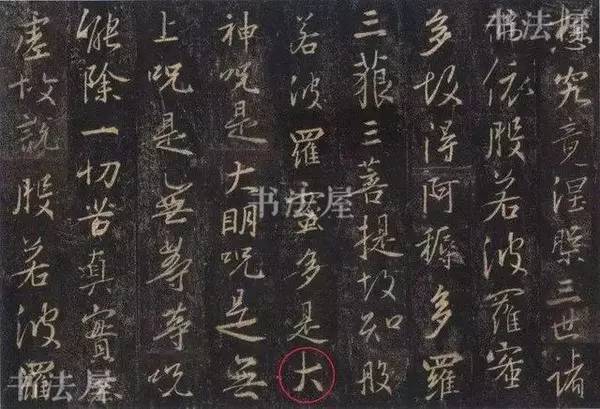 想究竟涅槃三世諸
佛依般若波羅蜜
多故得阿耨多羅
三藐三菩提故知般
若波羅蜜多是大
神呪是大明呪是無
上呪是無等等呪
能除一切苦真實不
虛故說般若波羅
书法屋
书法屋
书法屋
书法屋